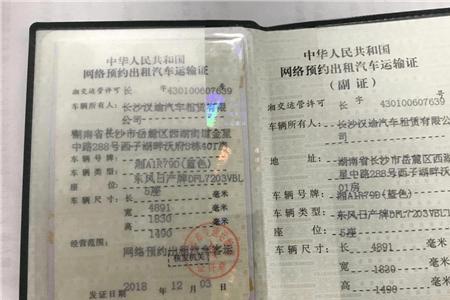 中华人民共和国
网络预约出租汽车运输证
湘交运管许可 长 字 430100607639 号
车辆所有人: 长沙汉渝汽车租赁有限公
司
湖南省长沙市岳麓区西湖街道金星
中路288号西子湖畔
车辆号牌: 湘A1R79D(蓝色)
车辆类型: 东风日产牌DFL7203VBL
座 位: 5座
车辆尺寸: 长 4891 毫米
宽 1830 毫米
高 1490 毫米
经营范围: 网络预约出租汽车客运
核发机关
发证日期 2018 12 月 03
中华人民共和国
网络预约出租汽车运输证
(副证)
湘交运管许可 长 字 430100607639
车辆所有人: 长沙汉渝汽车租赁有限公
司
地 址: 湖南省长沙市岳麓区西湖
星中路288号西子湖畔
01房
车辆号牌: 湘A1R79D(蓝色)
车辆类型: 东风日产牌DFL7203VBL
座 位: 5座
车辆尺寸: 长 4891 毫米
宽 1830 毫米
高 1490 毫米